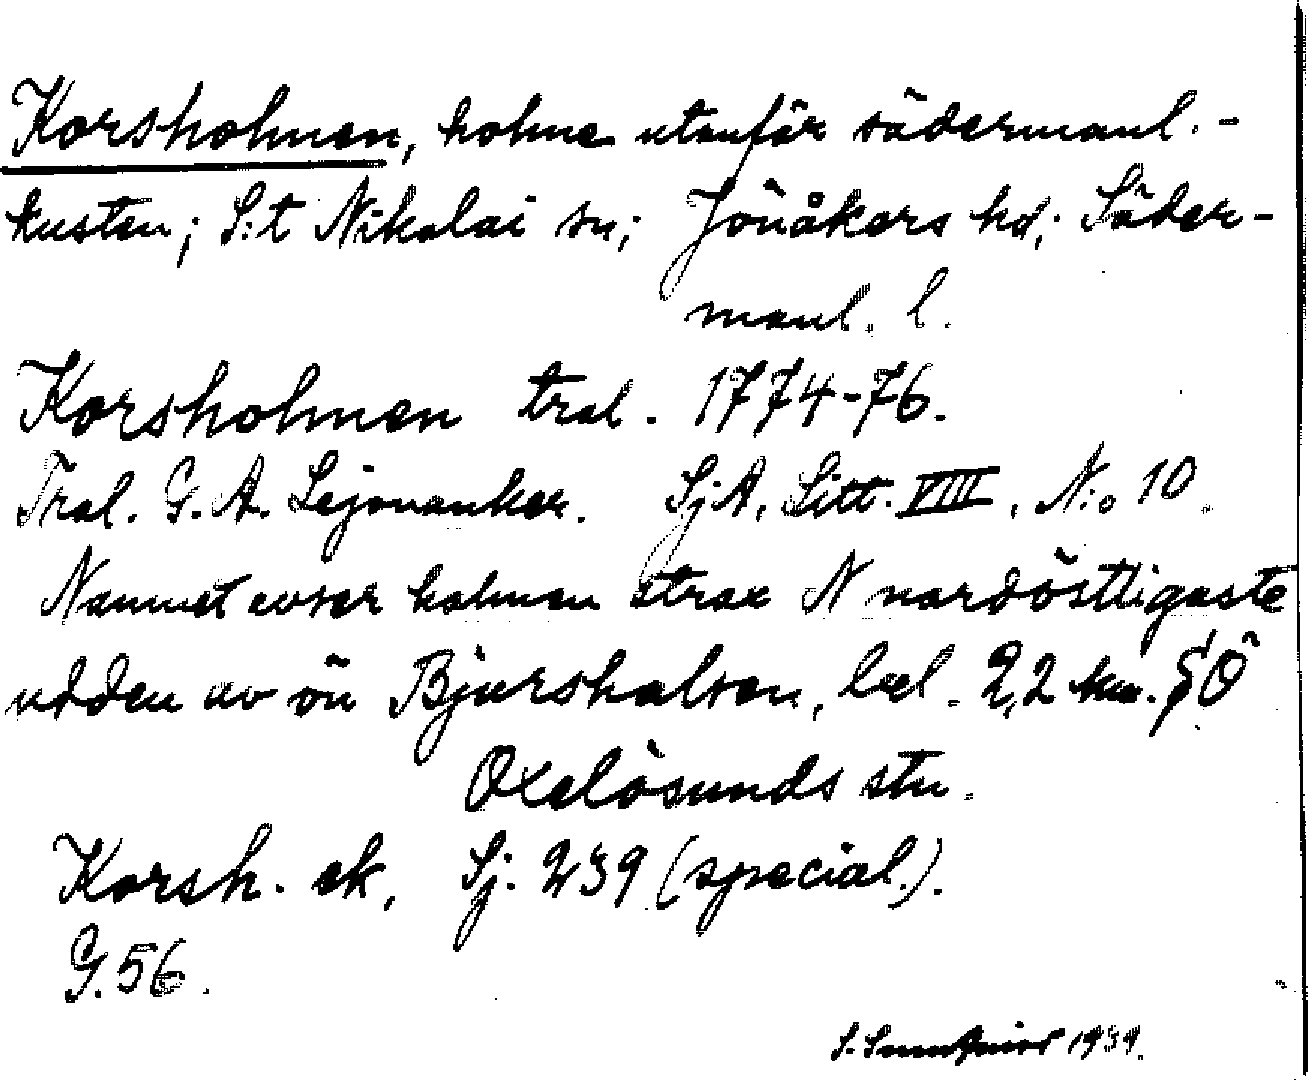 Korsholmen, holme utanför södermanl.-
kusten; S:t Nikolai sn; Jönåkers hd; Söder-
manl. l.
Korsholmen tral. 1774-76.
Tral. G. A. Lejonanker. SjA, Litt. VIII, N:o 10.
Namnet avser holmen strax N nordöstligaste
udden av ön Bjurshalsen, bel. 2,2 km. SÖ
Oxelösunds stn.
Korsh. ek, Sj. 239 (special.).
G. 56.
S. 1939.